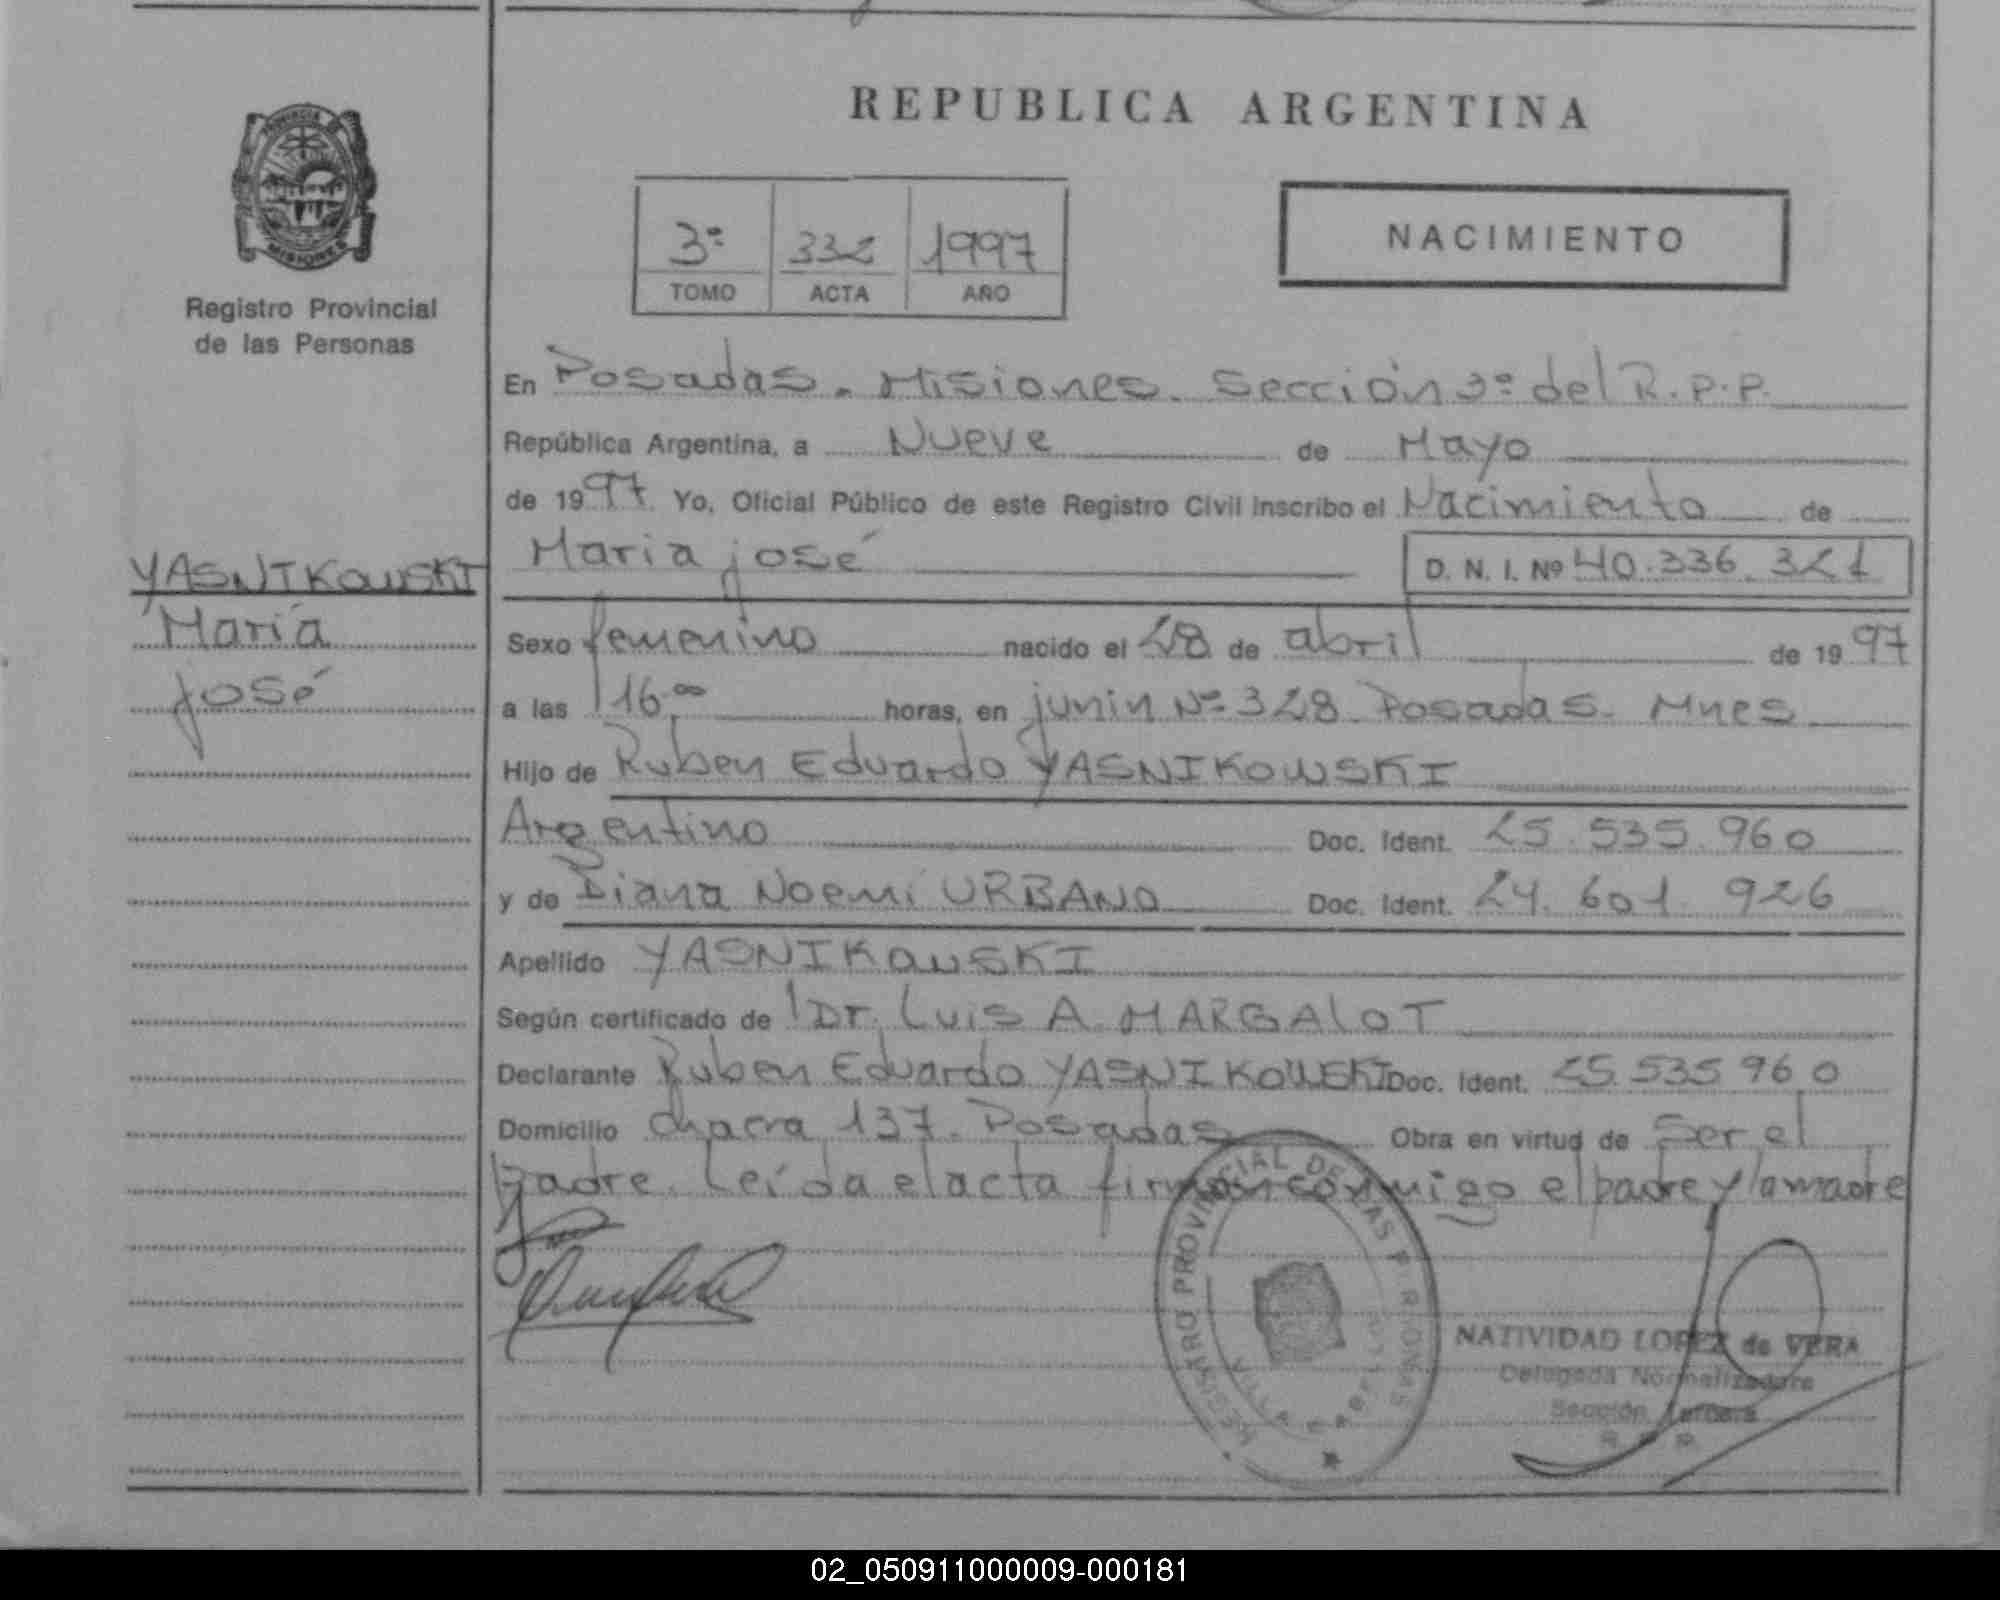 REPUBLICA ARGENTINA
PROVINCIA DE
MISIONES
Registro Provincial
de las Personas
3º 332 1997
TOMO ACTA AÑO
NACIMIENTO
En Posadas. Misiones. Sección 3º del R.P.P.
República Argentina, a Nueve de Mayo
de 1997 Yo, Oficial Público de este Registro Civil Inscribo el Nacimiento de
YASNIKOWSKI
María
José
Maria josé D. N. I. Nº 40.336.321
Sexo femenino nacido el 28 de abril de 1997
a las 16,00 horas, en junin Nº 328. Posadas. Mnes
Hijo de Ruben Eduardo YASNIKOWSKI
Argentino Doc. Ident. 25.535.960
y de Diana Noemí URBANO Doc. Ident. 24.601.926
Apellido YASNIKOWSKI
Según certificado de Dr. Luis A. MARGALOT
Declarante Ruben Eduardo YASNIKOWSKI Doc. Ident. 25.535.960
Domicilio Chacra 137. Posadas Obra en virtud de Ser el
padre. Leída el acta firman conmigo el padre y la madre
REGISTRO PROVINCIAL DE LAS PERSONAS
VILLA
NATIVIDAD LOPEZ de VERA
Delegada Normalizadora
Sección Tercera
R. P. P.
02_050911000009-000181